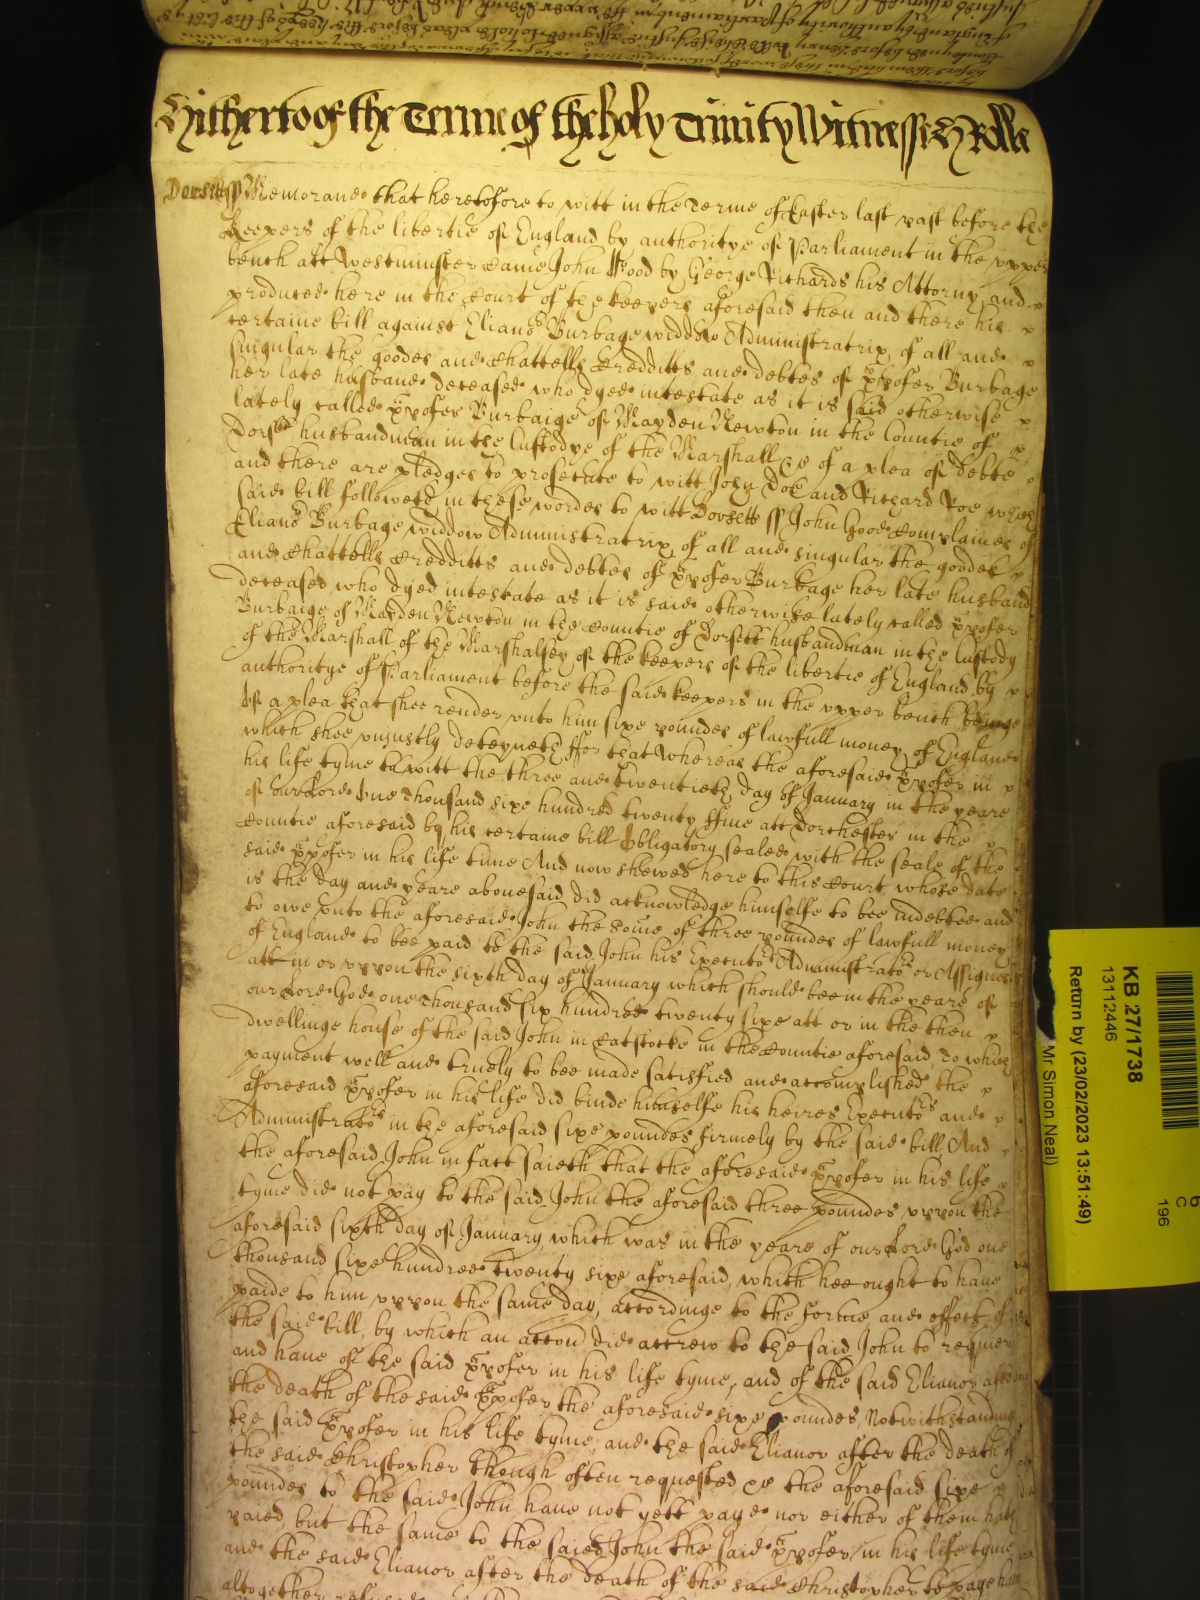 Hitherto of the Terme of the holy Trinity Witnesse H Rolle
Dorsett ss Memorand that heretofore to witt in the Terme of Easter last past before the
keepers of the libertie of England by authoritye of Parliament in the vpper
bench att Westminster came John Hood by George Richards his Attorny and
produced here in the Court of the keepers aforesaid then and there his
certaine bill against Elianor Burbage widdow Administratrix of all and
singular the goodes and Chattells Credditts and debtes of xpofer Burbage
her late husband deceased who dyed intestate as it is said otherwise
lately called xpofer Burbaige of Mayden Newton in the Countie of
Dorsett husbandman in the Custodye of the Marshall &c of a plea of debte
and there are pledges to prosecute to witt John Doe and Richard Roe which
said bill followeth in these wordes to witt Dorsett ss John Hood Complaines of
Elianor Burbage widdow Administratrix of all and singular the goodes
and Chattells Credditts and debtes of xpofer Burbage her late husband
deceased who dyed intestate as it is said otherwise lately called xpofer
Burbaige of Mayden Newton in the Countie of Dorsett husbandman in the Custody
of the Marshall of the Marshalsey of the keepers of the libertie of England by
authoritye of Parliament before the said keepers in the vpper bench beinge
of a plea that shee render vnto him sixe poundes of lawfull money of England
which shee vniustly deteyneth ffor that Whereas the aforesaid xpofer in
his life tyme to witt the three and twentieth day of January in the yeare
of our Lord One Thousand sixe hundred twenty ffiue att Dorchester in the
Countie aforesaid by his certaine bill Obligatory sealed with the seale of the
said xpofer in his life time And now shewed here to this Court whose date
is the day and yeare abouesaid did acknowledge himselfe to bee indebted and
to owe vnto the aforesaid John the some of three poundes of lawfull money
of England to bee paid to the said John his Executors Administrators or Assignes
att in or vppon the sixth day of January which should bee in the yeare of
our Lord God one Thousand six hundred twenty sixe att or in the then
dwellinge house of the said John in Catstocke in the Countie aforesaid To which
payment well and truely to bee made satisfied and accomplished the
aforesaid xpofer in his life did binde himselfe his heires Executors and
Administrators in the aforesaid sixe poundes firmely by the said bill And
the aforesaid John in fact saieth that the aforesaid xpofer in his life
tyme did not pay to the said John the aforesaid three poundes vppon the
aforesaid sixth day of January which was in the yeare of our Lord God one
thousand sixe hundred twenty sixe aforesaid, which hee ought to haue
paide to him vppon the same day, accordinge to the forme and effect of
the said bill, by which an accon did accrew to the said John to require
and haue of the said xpofer in his life tyme, and of the said Elianor after
the death of the said xpofer the aforesaid sixe poundes, Notwithstanding
the said xpofer in his life tyme, and the said Elianor after the death of
the said Christopher though often requested &c the aforesaid sixe
poundes to the said John haue not yett payd nor either of them hath
paied, but the same to the saied John the said xpofer in his life tyme
and the said Elianor after the death of the said Christopher to pay haue
altogether refused
KB 27/1738
13112446
Return by (23/02/2023 13:51:49)
Mr Simon Neal)
6
C
196